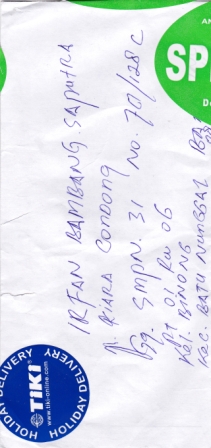 IRFAN BAMBANG SAPUTRA
Jl. KIARA CONDONG
Gg. SMPN. 31 No. 70/128 C
RT 01 RW 06
Kel. BINONG
Kec. BATU NUNGGAL
SP
HOLIDAY DELIVERY
TIKI
www.tiki-online.com
HOLIDAY DELIVERY